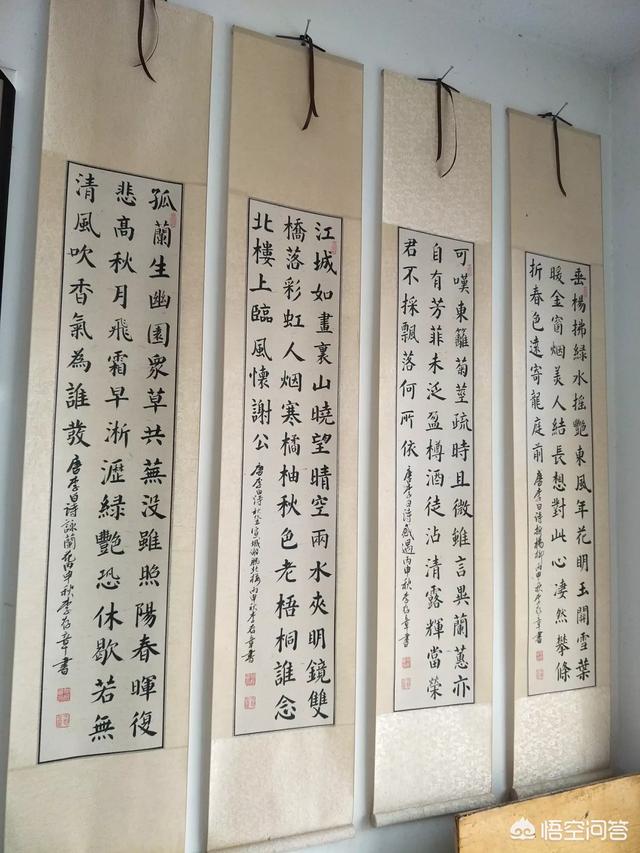 垂楊拂綠水搖艷東風年花明玉開雪葉
暖金窗烟美人結長想對此心凄然攀條
折春色遠寄龍庭前 唐李白詩折楊柳丙申秋李存章書
可嘆東籬菊莖疏時且微雖言異蘭蕙亦
自有芳菲未泛盈樽酒徒沾清露輝當榮
君不採飄落何所依 唐李白詩感遇丙申秋李存章書
江城如畫裏山曉望晴空兩水夾明鏡雙
橋落彩虹人烟寒橘柚秋色老梧桐誰念
北樓上臨風懷謝公 唐李白詩秋登宣城謝朓北樓丙申秋李存章書
孤蘭生幽園衆草共蕪没雖照陽春暉復
悲高秋月飛霜早淅瀝綠艷恐休歇若無
清風吹香氣為誰發 唐李白詩詠蘭花丙申秋李存章書
悟空问答